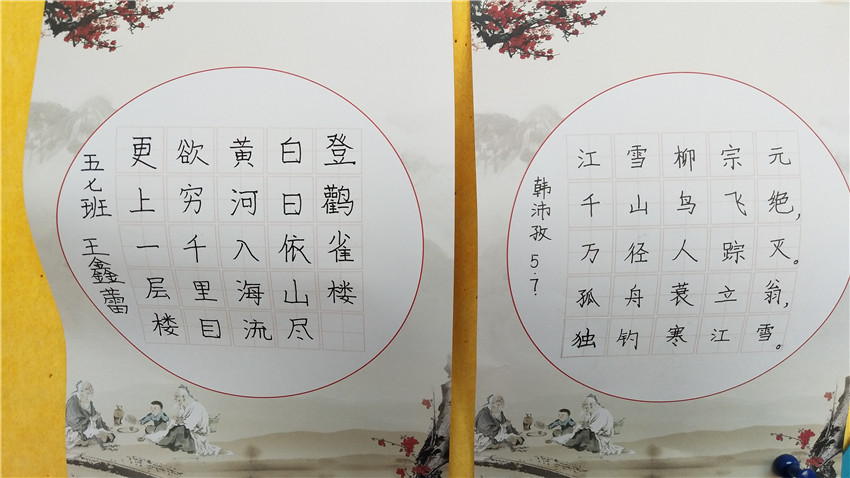 登鹳雀楼
白日依山尽
黄河入海流
欲穷千里目
更上一层楼
五七班 王鑫蕾
江雪柳宗元
千山鸟飞绝,
万径人踪灭。
孤舟蓑立翁,
独钓寒江雪。
韩沛孜 5.7.